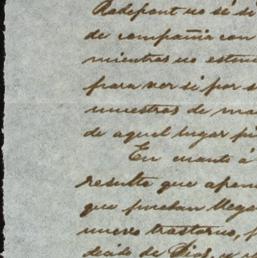 Radepont no sé si
de compañia con
mientras no estuv
para ver si por s
muestras de ma
de aquel lugar p
En cuanto á
resulta que apena
que puedan llega
nuevo trastorno, p
de Dios, y a